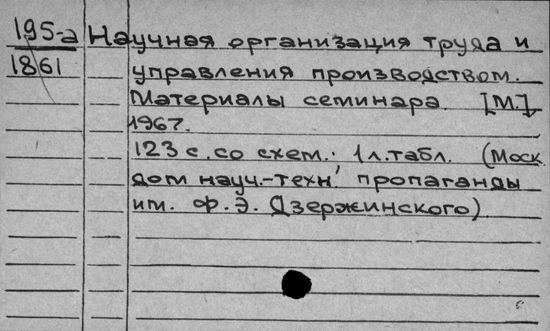 195-а Научная организация труда и
1861 управления производством.
Материалы семинара. [М.],
1967.
123 с. со схем.; 1 л. табл. (Моск.
дом науч.-техн. пропаганды
им. Ф. Э. Дзержинского)